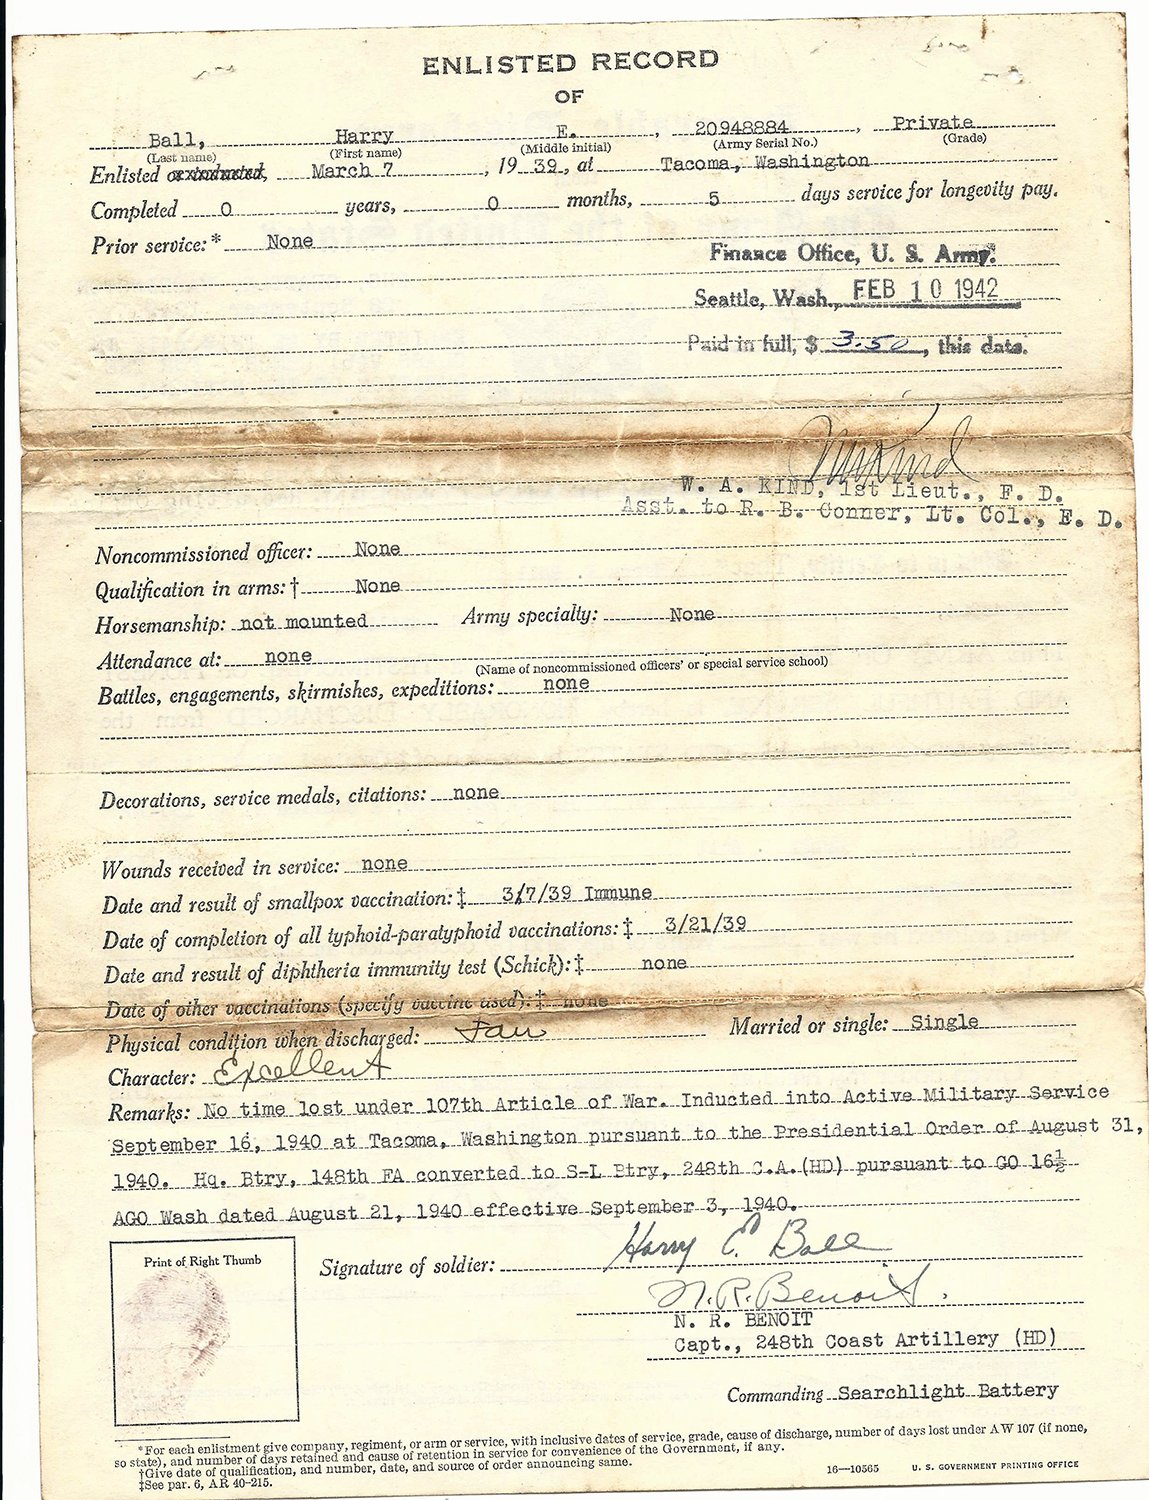 ENLISTED RECORD
OF
Ball, Harry E. , 20948884 , Private
(Last name) (First name) (Middle initial) (Army Serial No.) (Grade)
Enlisted or inducted, March 7 , 19 39 , at Tacoma, Washington
Completed 0 years, 0 months, 5 days service for longevity pay.
Prior service:* None
Finance Office, U. S. Army.
Seattle, Wash., FEB 10 1942
Paid in full, $ 3.50 , this date.
W. A. KIND, 1st Lieut., F. D.
Asst. to R. B. Conner, Lt. Col., F. D.
Noncommissioned officer: None
Qualification in arms:† None
Horsemanship: not mounted Army specialty: None
Attendance at: none
(Name of noncommissioned officers' or special service school)
Battles, engagements, skirmishes, expeditions: none
Decorations, service medals, citations: none
Wounds received in service: none
Date and result of smallpox vaccination:‡ 3/7/39 Immune
Date of completion of all typhoid-paratyphoid vaccinations:‡ 3/21/39
Date and result of diphtheria immunity test (Schick):‡ none
Date of other vaccinations (specify vaccine used):‡ none
Physical condition when discharged: Fair Married or single: Single
Character: Excellent
Remarks: No time lost under 107th Article of War. Inducted into Active Military Service
September 16, 1940 at Tacoma, Washington pursuant to the Presidential Order of August 31,
1940. Hq. Btry, 148th FA converted to S-L Btry, 248th C.A.(HD) pursuant to GO 16½
AGO Wash dated August 21, 1940 effective September 3, 1940.
Print of Right Thumb
Signature of soldier: Harry E. Ball
N. R. Benoit.
N. R. BENOIT
Capt., 248th Coast Artillery (HD)
Commanding Searchlight Battery
*For each enlistment give company, regiment, or arm or service, with inclusive dates of service, grade, cause of discharge, number of days lost under AW 107 (if none,
so state), and number of days retained and cause of retention in service for convenience of the Government, if any.
†Give date of qualification, and number, date, and source of order announcing same.
‡See par. 6, AR 40-215.
16—10565 U. S. GOVERNMENT PRINTING OFFICE